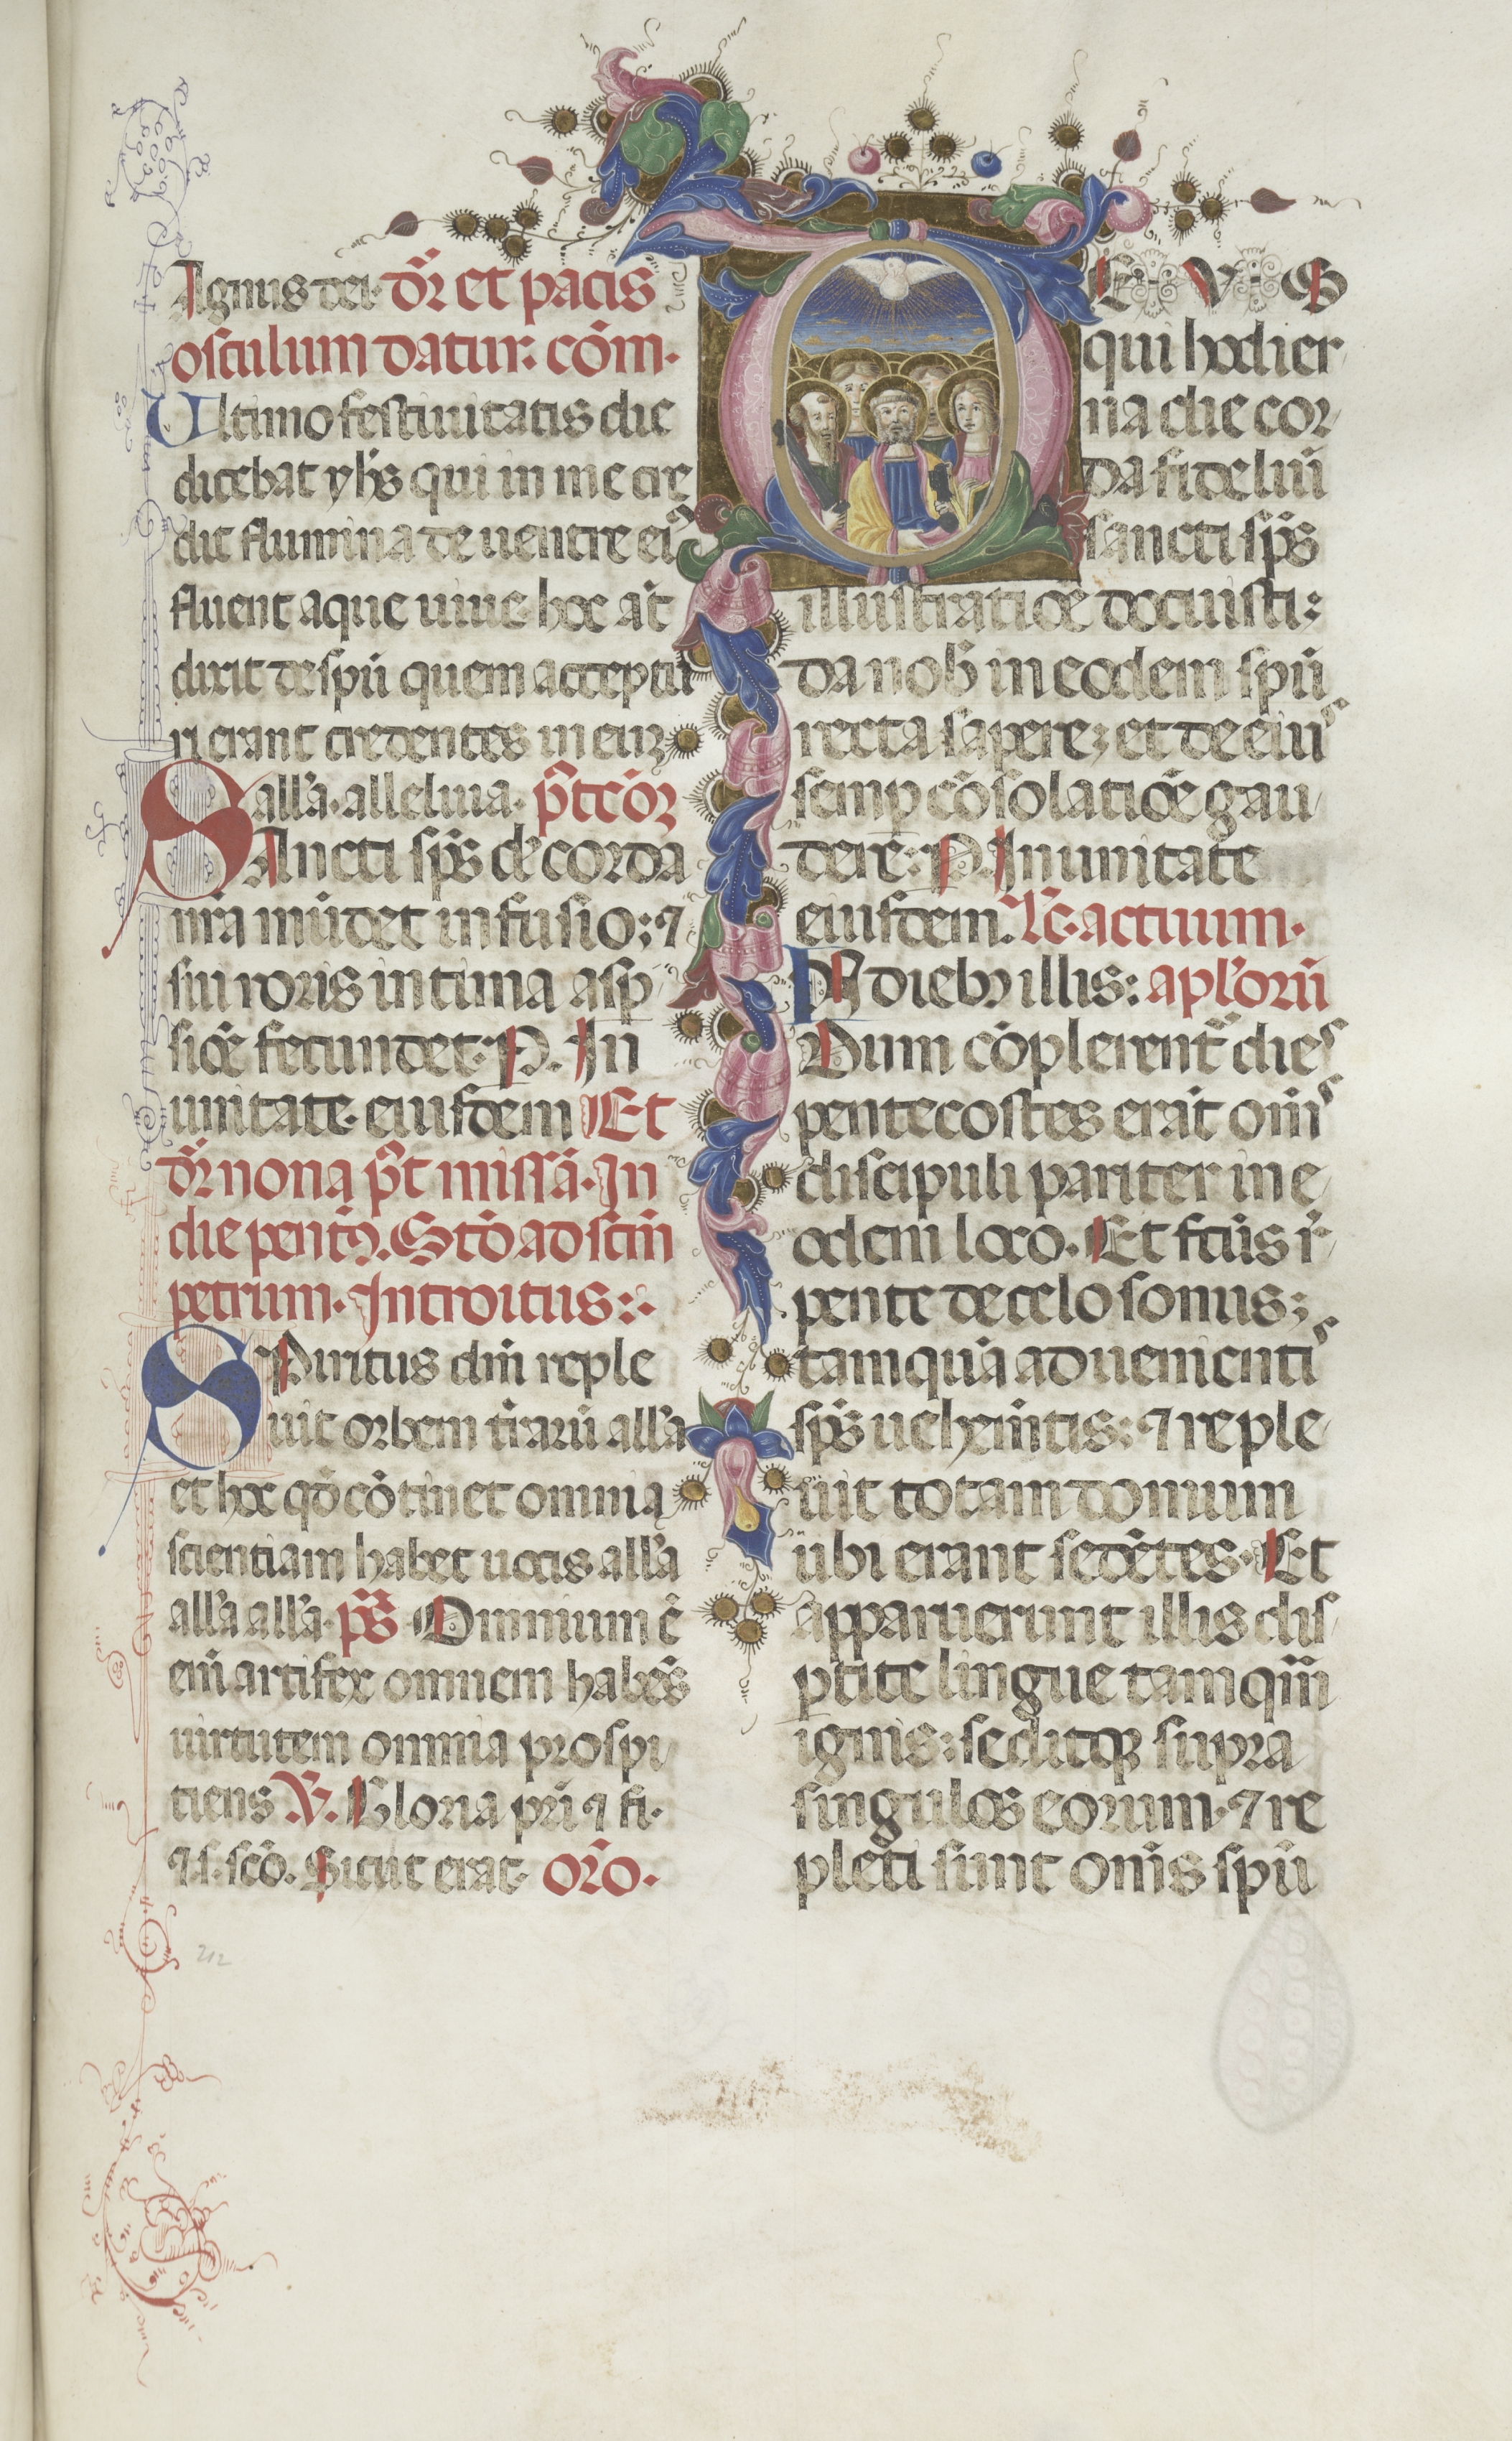 Agnus dei. dr̄ et pacis
osculum datur. cōm.
Ultimo festiuitatis die
dicebat yhs̄ qui in me cre
dit flumina de uentre eiꝰ
fluent aque uiue. hoc aūt
dixit de spū quem acceptu
ri erant credentes in eum
alla. alleluia. p̄t cōꝫ
SAncti sp̄s dn̄e corda
nr̄a mūdet infusio: ⁊
sui roris intima asp̄
siōe fecundet. P. In
unitate. eiusdem Et
dr̄ nona p̄t missā. In
die pent̄. Stō ad sc̄m
petrum. Introitus:
SPiritus dn̄i reple
uit orbem tr̄arū. alla
et hoc qd̄ cōtinet omnia
scientiam habet uocis alla
alla alla. ps̄ Omnium ē
enī artifex omnem habēs
uirtutem omnia prospi
tiens V. Gloria pr̄i ⁊ fi.
⁊ s. scō. Sicut erat. or̄o.
DEVS
qui hodier
na die cor
da fideliū
sancti sp̄s
illustratiōe docuisti:
da nob̄ in eodem spū
recta sapere; et de eiuˢ
semp cōsolatiōe gau
dere. P. In unitate
eiusdem. Lc̄. actuum.
IN diebꝫ illis: aplorū
Dum cōplerent̄ dieˢ
pentecostes erāt om̄ˢ
discipuli pariter in e
odem loco. Et fcūs r̄
pente de celo sonus;
tamquā aduenientiˢ
sp̄s uehem̄tis: ⁊ reple
uit totam domum
ubi erant sedētes. Et
apparuerunt illis dis
ptite lingue tamqm̄
ignis: seditqꝫ supra
singulos eorum. ⁊ re
pleti sunt om̄s spū
212